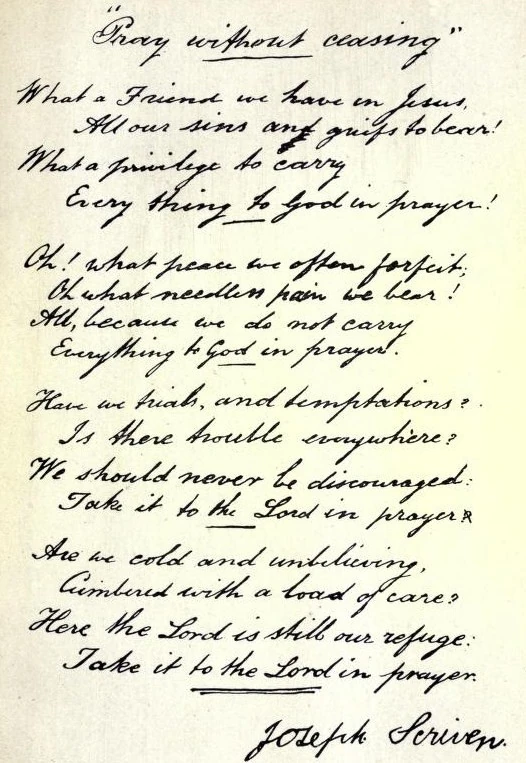 "Pray without ceasing"
What a Friend we have in Jesus,
All our sins and griefs to bear!
What a privilege to carry
Every thing to God in prayer!
Oh! what peace we often forfeit;
Oh what needless pain we bear!
All, because we do not carry
Everything to God in prayer.
Have we trials, and temptations?
Is there trouble everywhere?
We should never be discouraged:
Take it to the Lord in prayer.
Are we cold and unbelieving,
Cumbered with a load of care?
Here the Lord is still our refuge:
Take it to the Lord in prayer.
Joseph Scriven.